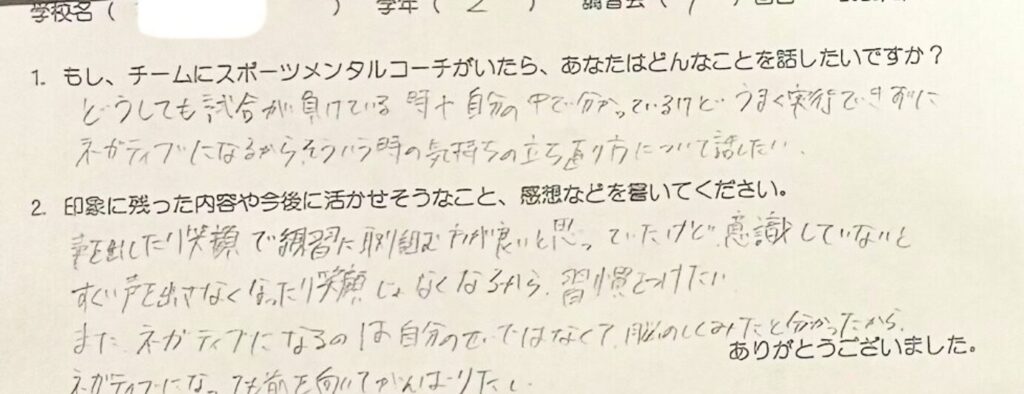 学校名（　　　）　学年（ 2 ）　講習会（
1. もし、チームにスポーツメンタルコーチがいたら、あなたはどんなことを話したいですか？
どうしても試合が負けている時や自分の中で分かっているけどうまく実行できずに
ネガティブになるから、そういう時の気持ちの立ち直り方について話したい、
2. 印象に残った内容や今後に活かせそうなこと、感想などを書いてください。
声を出したり笑顔で練習に取り組む方が良いと思っていたけど、意識していないと
すぐに声を出さなくなったり笑顔じゃなくなるから、習慣をつけたい
また、ネガティブになるのは自分のせいではなくて、脳のしくみだと分かったから、
ありがとうございました。
ネガティブになっても前を向いてがんばりたい